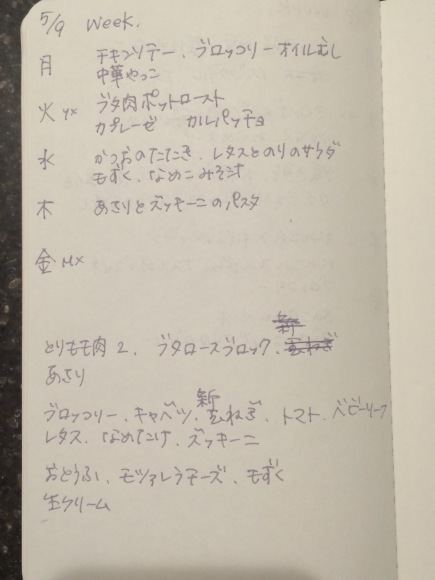 5/9 Week.
月 チキンソテー、ブロッコリーオイルむし
中華やっこ
火 ブタ肉ポットロースト
カプレーゼ カルパッチョ
水 かつおのたたき、レタスとのりのサラダ
もずく、なめこみそ汁
木 あさりとズッキーニのパスタ
金
新
とりもも肉 2、ブタロースブロック、玉ねぎ
あさり
新
ブロッコリー、キャベツ、玉ねぎ、トマト、ベビーリーフ
レタス、なめたけ、ズッキーニ
おとうふ、モッツァレラチーズ、もずく
生クリーム